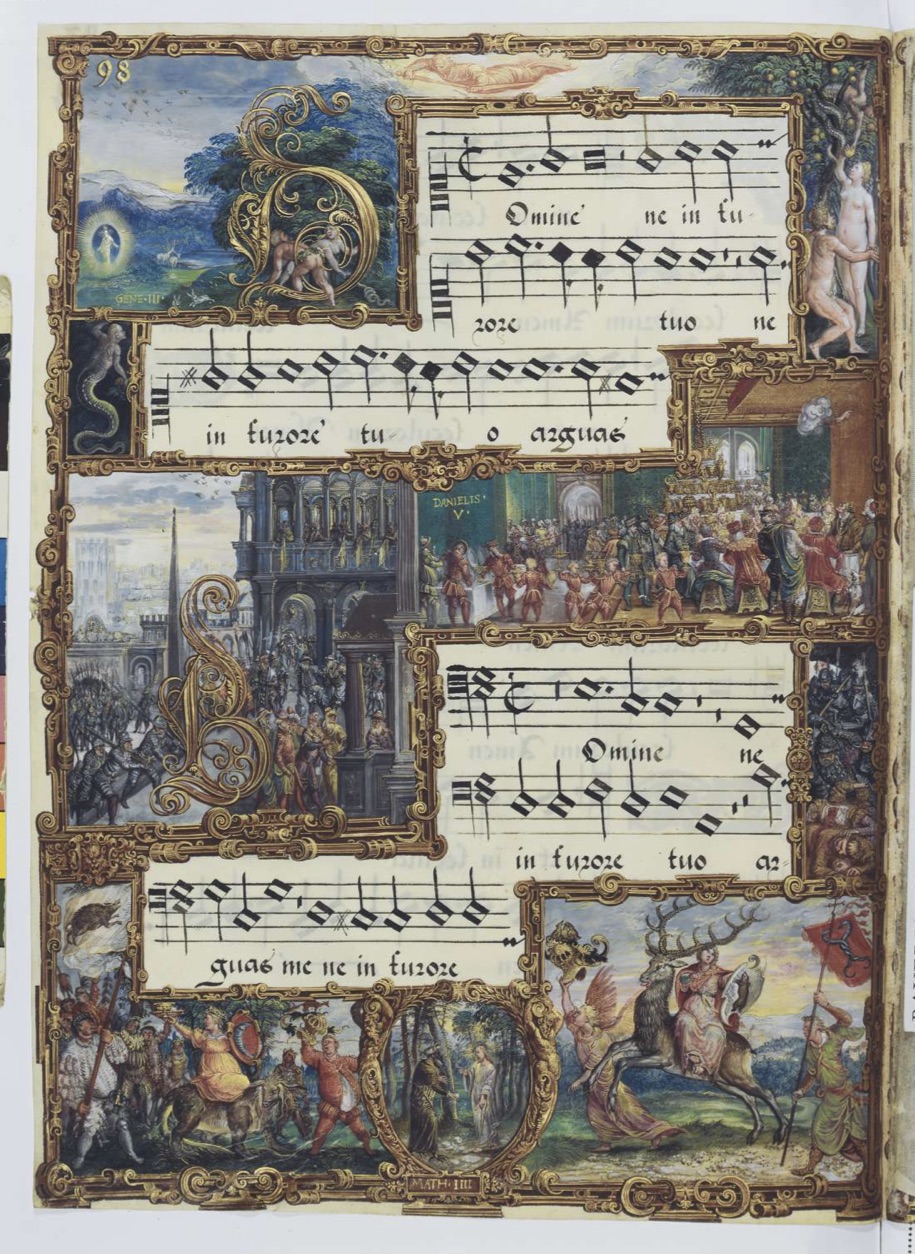 98
Omine ne in fu-
GENE·III·
rore tuo ne
in furore tu o arguas
DANIELIS·
V·
Omine ne
in furore tuo ar-
guas me ne in furore
MATH·IIII